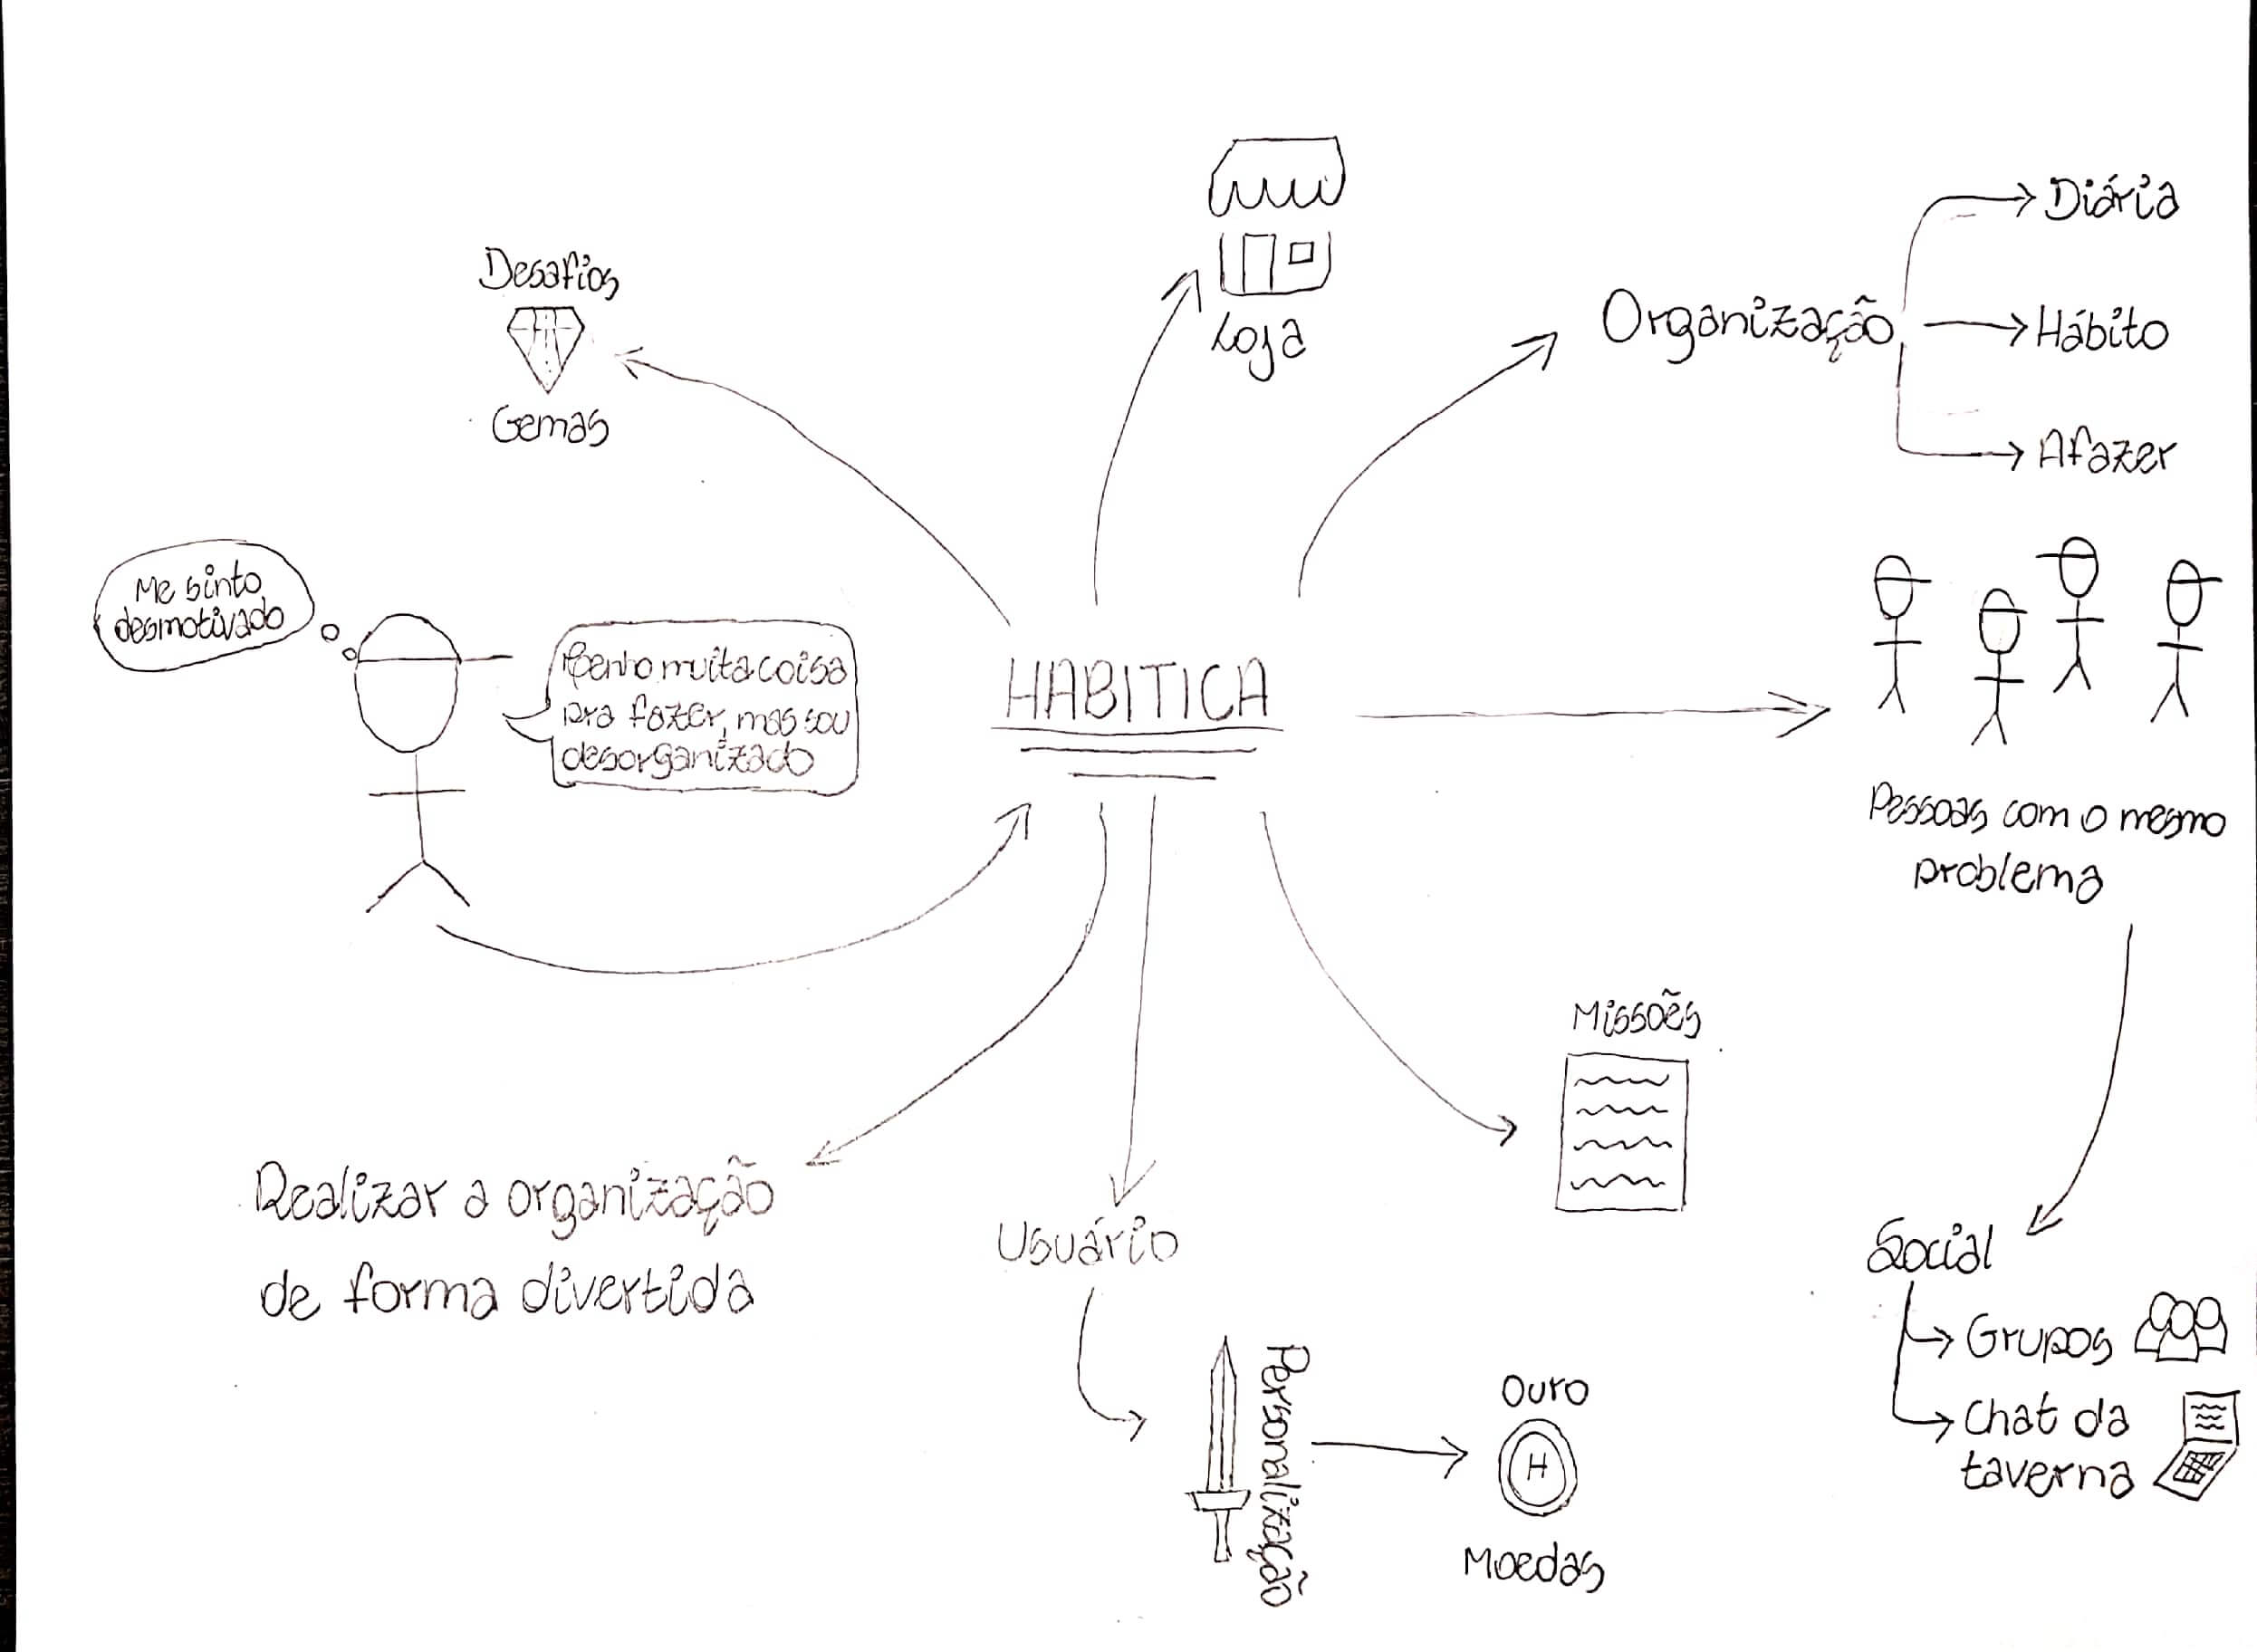 Desafios
Gemas
Loja
Organização
Diária
Hábito
Afazer
Me sinto
desmotivado
Tenho muita coisa
pra fazer, mas sou
desorganizado
HABITICA
Pessoas com o mesmo
problema
Missões
Realizar a organização
de forma divertida
Usuário
Personalização
Ouro
H
Moedas
Social
Grupos
Chat da
taverna